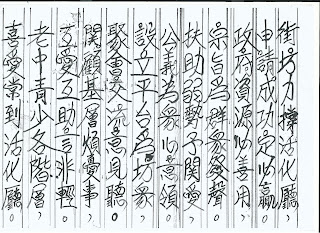 街坊力撐活化廳，
申請成功定必贏。
政府資源必善用，
宗旨為群眾發聲。
扶助弱勢予關愛，
公義為眾心意領。
設立平台為坊眾，
聚會交流意見聽。
關顧基層煩憂事，
互愛互助言非輕。
老中青少各階層，
喜愛常到活化廳。